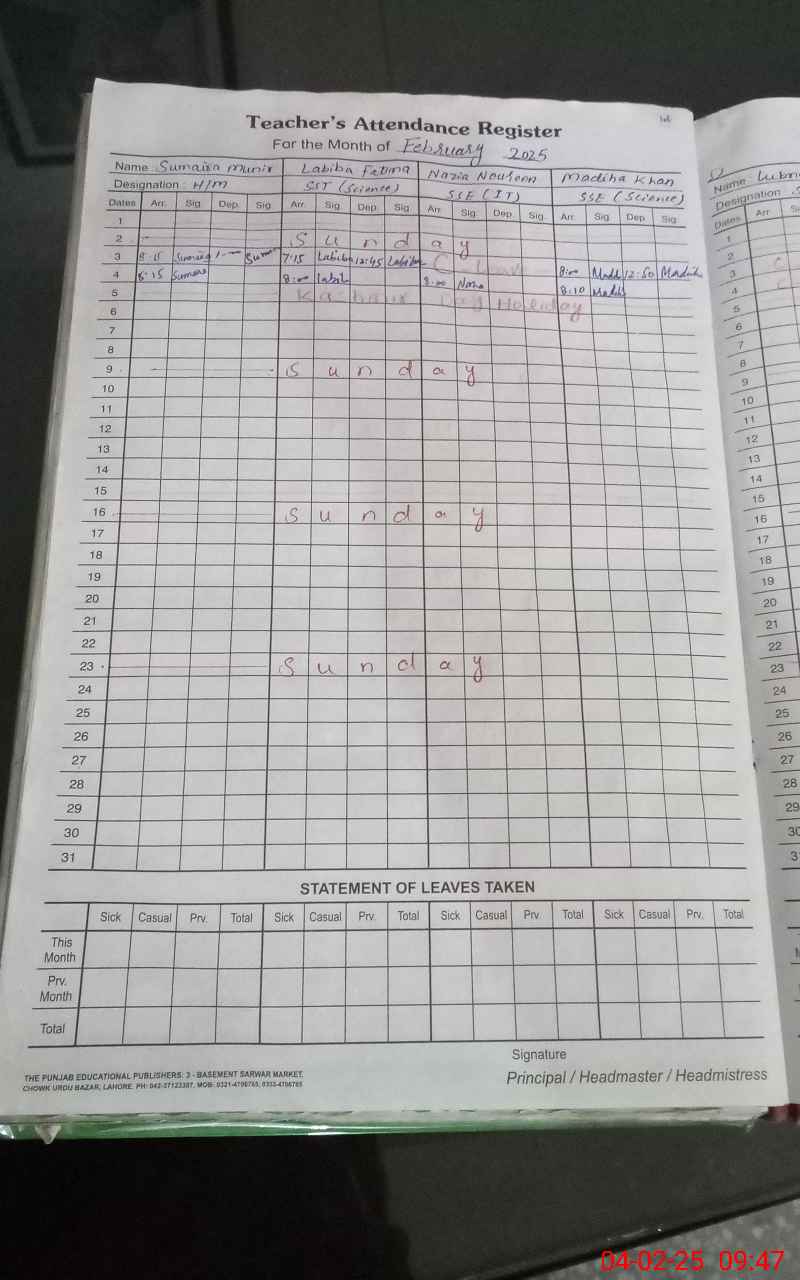 Teacher's Attendance Register
For the Month of February 2025
Name Sumaira Munir Labiba Fatima Nazia Noureen Madiha Khan
Designation: H/M SST (Science) SSE (IT) SSE (Science)
Dates Arr. Sig. Dep. Sig. Arr. Sig. Dep. Sig. Arr. Sig. Dep. Sig. Arr. Sig. Dep. Sig.
1
2 Sunday
3 8:15 7:15 Labiba 12:45 Labiba C Leave 8:00 12:50 Madiha
4 8:15 8:00 8:00 8:10
5 Kashmir Day Holiday
6
7
8
9 Sunday
10
11
12
13
14
15
16 Sunday
17
18
19
20
21
22
23 Sunday
24
25
26
27
28
29
30
31
STATEMENT OF LEAVES TAKEN
Sick Casual Prv. Total Sick Casual Prv. Total Sick Casual Prv. Total Sick Casual Prv. Total
This Month
Prv. Month
Total
Signature
Principal / Headmaster / Headmistress
THE PUNJAB EDUCATIONAL PUBLISHERS: 3 - BASEMENT SARWAR MARKET,
CHOWK URDU BAZAR, LAHORE. PH: 042-37123387,
Name:
Designation:
Dates Arr. Sig.
1
2
3 C
4 C
5
6
7
8
9
10
11
12
13
14
15
16
17
18
19
20
21
22
23
24
25
26
27
28
29
30
04-02-25 09:47